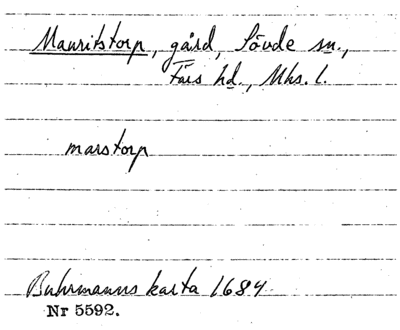 Mauritstorp, gård, Sövde sn.,
Färs hd., Mhs. l.
marstorp
Buhrmanns karta 1684
Nr 5592.